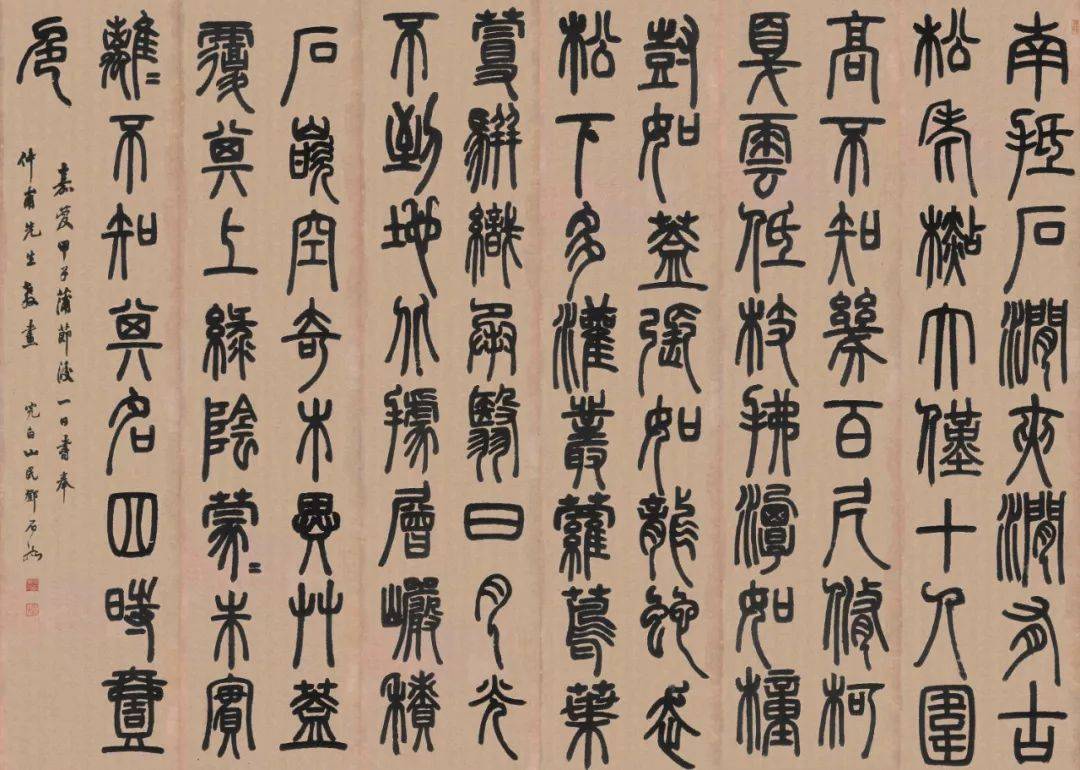 南抵石澗夾澗有古
松老檆大僅十人圍
高不知幾百尺脩柯
戛雲低枝拂潭如橦
尌如蓋張如龍蛇走
松下多灌叢蘿蔦葉
蔓駢織承翳日月光
不到地北據層巖積
石嵌空奇木異艸蓋
覆其上綠陰蒙〻朱實
離〻不知其名四時壹
色
嘉慶甲子蒲節後一日書奉
仲甫先生教畫 完白山民鄧石如